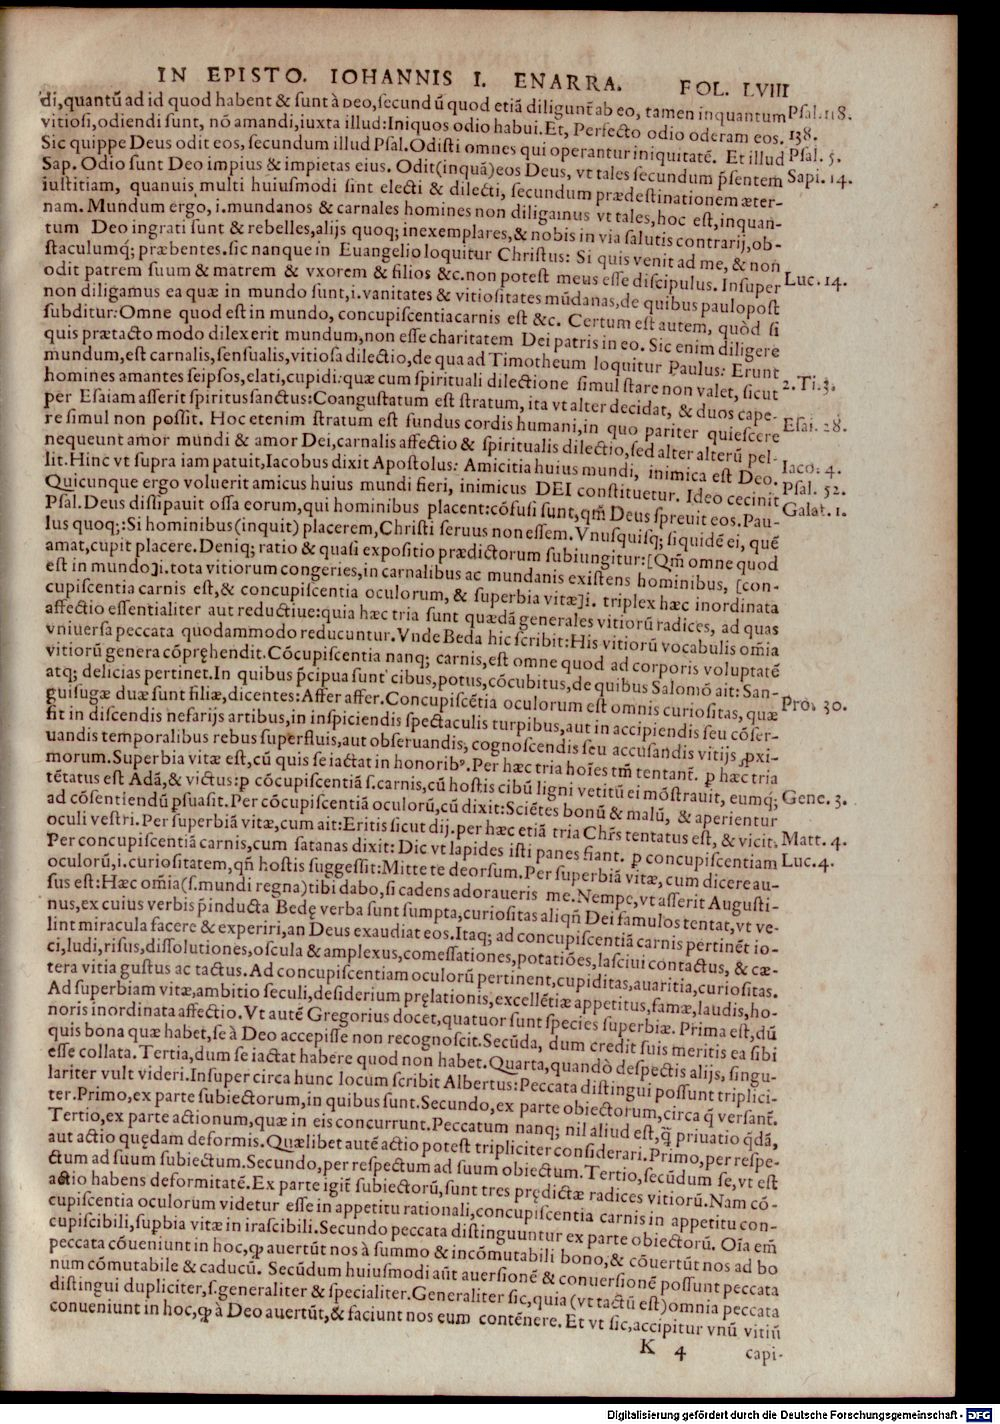 IN EPISTO. IOHANNIS I. ENARRA. FOL. LVIII
di,quantũ ad id quod habent & sunt à DEO,secundũ quod etiã diligunt̃ ab eo, tamen inquantum Psal.118.
vitiosi,odiendi sunt, nõ amandi,iuxta illud:Iniquos odio habui.Et, Perfecto odio oderam eos. 138.
Sic quippe Deus odit eos, secundum illud Psal.Odisti omnes qui operantur iniquitatẽ. Et illud Psal. 5.
Sap. Odio sunt Deo impius & impietas eius. Odit(inquã)eos Deus, vt tales secundum p̃sentem Sapi. 14.
iustitiam, quanuis multi huiusmodi sint electi & dilecti, secundum prædestinationem æter-
nam. Mundum ergo, i.mundanos & carnales homines non diligamus vt tales, hoc est,inquan-
tum Deo ingrati sunt & rebelles,alijs quoq; inexemplares,& nobis in via salutis contrarij,ob-
staculumq; præbentes.sic nanque in Euangelio loquitur Christus: Si quis venit ad me, & non
odit patrem suum & matrem & vxorem & filios &c.non potest meus esse discipulus. Insuper Luc. 14.
non diligamus ea quæ in mundo sunt,i.vanitates & vitiositates mũdanas,de quibus paulopost
subditur:Omne quod est in mundo, concupiscentia carnis est &c. Certum est autem, quòd si
quis prætacto modo dilexerit mundum,non esse charitatem Dei patris in eo. Sic enim diligere
mundum,est carnalis,sensualis,vitiosa dilectio,de qua ad Timotheum loquitur Paulus: Erunt
homines amantes seipsos,elati,cupidi:quæ cum spirituali dilectione simul stare non valet, sicut 2.Ti.3.
per Esaiam asserit spiritus sanctus:Coangustatum est stratum, ita vt alter decidat, & duos cape-
re simul non possit. Hoc etenim stratum est fundus cordis humani,in quo pariter quiescere Esai. 28.
nequeunt amor mundi & amor Dei,carnalis affectio & spiritualis dilectio,sed alter alterũ pel-
lit.Hinc vt supra iam patuit,Iacobus dixit Apostolus: Amicitia huius mundi, inimica est Deo. Iaco. 4.
Quicunque ergo voluerit amicus huius mundi fieri, inimicus DEI constituetur. Ideo cecinit Psal. 52.
Psal.Deus dissipauit ossa eorum,qui hominibus placent:cõfusi sunt,qm̃ Deus spreuit eos.Pau- Galat. 1.
lus quoq;:Si hominibus(inquit) placerem,Christi seruus non essem.Vnusquisq; siquidẽ ei, quẽ
amat,cupit placere.Deniq; ratio & quasi expositio prædictorum subiungitur:[Qm̃ omne quod
est in mundo]i.tota vitiorum congeries,in carnalibus ac mundanis existens hominibus, [con-
cupiscentia carnis est,& concupiscentia oculorum, & superbia vitæ]i. triplex hæc inordinata
affectio essentialiter aut reductiue:quia hæc tria sunt quædã generales vitiorũ radices, ad quas
vniuersa peccata quodammodo reducuntur.Vnde Beda hic scribit:His vitiorũ vocabulis om̃ia
vitiorũ genera cõpręhendit.Cõcupiscentia nanq; carnis,est omne quod ad corporis voluptatẽ
atq; delicias pertinet.In quibus p̃cipua sunt cibus,potus,cõcubitus,de quibus Salomõ ait: San-
guisugæ duæ sunt filiæ,dicentes:Affer affer.Concupiscẽtia oculorum est omnis curiositas, quæ Pro. 30.
fit in discendis nefarijs artibus,in inspiciendis spectaculis turpibus,aut in accipiendis seu cõser-
uandis temporalibus rebus superfluis,aut obseruandis, cognoscendis seu accusandis vitijs ꝓxi-
morum.Superbia vitæ est,cũ quis se iactat in honorib⁹.Per hæc tria hoĩes tm̃ tentant̃. ꝑ hæc tria
tẽtatus est Adã,& victus:ꝑ cõcupiscentiã s.carnis,cũ hostis cibũ ligni vetitũ ei mõstrauit, eumq; Gene. 3.
ad cõsentiendũ p̃suasit.Per cõcupiscentiã oculorũ,cũ dixit:Sciẽtes bonũ & malũ, & aperientur
oculi vestri.Per superbiã vitæ,cum ait:Eritis sicut dij.per hæc etiã tria Chr̃s tentatus est, & vicit. Matt. 4.
Per concupiscentiã carnis,cum satanas dixit: Dic vt lapides isti panes fiant. ꝑ concupiscentiam Luc.4.
oculorũ,i.curiositatem,qñ hostis suggessit:Mitte te deorsum.Per superbiã vitæ, cum dicere au-
sus est:Hæc om̃ia(s.mundi regna)tibi dabo,si cadens adoraueris me.Nempe,vt asserit Augusti-
nus,ex cuius verbis p̃inducta Bedę verba sunt sumpta,curiositas aliqñ Dei famulos tentat,vt ve-
lint miracula facere & experiri,an Deus exaudiat eos.Itaq; ad concupiscentiã carnis pertinẽt io-
ci,ludi,risus,dissolutiones,oscula & amplexus,comessationes,potatiões,lasciui contactus, & cæ-
tera vitia gustus ac tactus.Ad concupiscentiam oculorũ pertinent,cupiditas,auaritia,curiositas.
Ad superbiam vitæ,ambitio seculi,desiderium pręlationis,excellẽtiæ appetitus,famæ,laudis,ho-
noris inordinata affectio. Vt autẽ Gregorius docet,quatuor sunt species superbiæ. Prima est,dũ
quis bona quæ habet,se à Deo accepisse non recognoscit.Secũda, dum credit suis meritis ea sibi
esse collata. Tertia,dum se iactat habere quod non habet.Quarta,quandò despectis alijs, singu-
lariter vult videri.Insuper circa hunc locum scribit Albertus:Peccata distingui possunt triplici-
ter.Primo,ex parte subiectorum,in quibus sunt.Secundo,ex parte obiectorum,circa q̃ versant̃.
Tertio,ex parte actionum,quæ in eis concurrunt.Peccatum nanq; nil aliud est,q̃ priuatio q̃dã,
aut actio quędam deformis.Quælibet autẽ actio potest tripliciter considerari.Primo,per respe-
ctum ad suum subiectum.Secundo,per respectum ad suum obiectum.Tertio,secũdum se,vt est
actio habens deformitatẽ.Ex parte igit̃ subiectorũ,sunt tres prędictæ radices vitiorũ.Nam cõ-
cupiscentia oculorum videtur esse in appetitu rationali,concupiscentia carnis in appetitu con-
cupiscibili,sup̃bia vitæ in irascibili.Secundo peccata distinguuntur ex parte obiectorũ. Oĩa em̃
peccata cõueniunt in hoc,ꝙ auertũt nos à summo & incõmutabili bono,& cõuertũt nos ad bo
num cõmutabile & caducũ. Secũdum huiusmodi aũt auersionẽ & conuersionẽ possunt peccata
distingui dupliciter,s.generaliter & specialiter.Generaliter sic,quia (vt tactũ est)omnia peccata
conueniunt in hoc,ꝙ à Deo auertũt,& faciunt nos eum contẽnere. Et vt sic,accipitur vnũ vitiũ
K 4 capi-
Digitalisierung gefördert durch die Deutsche Forschungsgemeinschaft - DFG